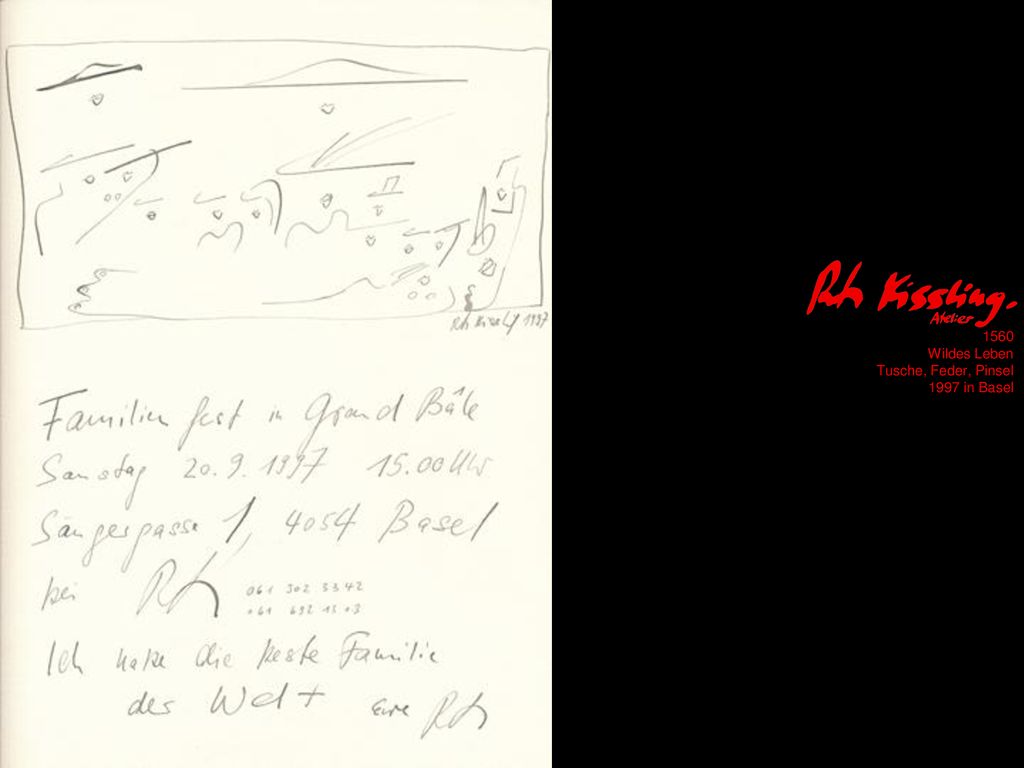 Ruth Kissling 1997
Familienfest in Grand Bâle
Samstag 20.9.1997 15.00 Uhr
Sängergasse 1, 4054 Basel
bei Ruth 061 302 3342
061 692 15 03
Ich habe die beste Familie
der Welt eure Ruth
Ruth Kissling.
Atelier
1560
Wildes Leben
Tusche, Feder, Pinsel
1997 in Basel